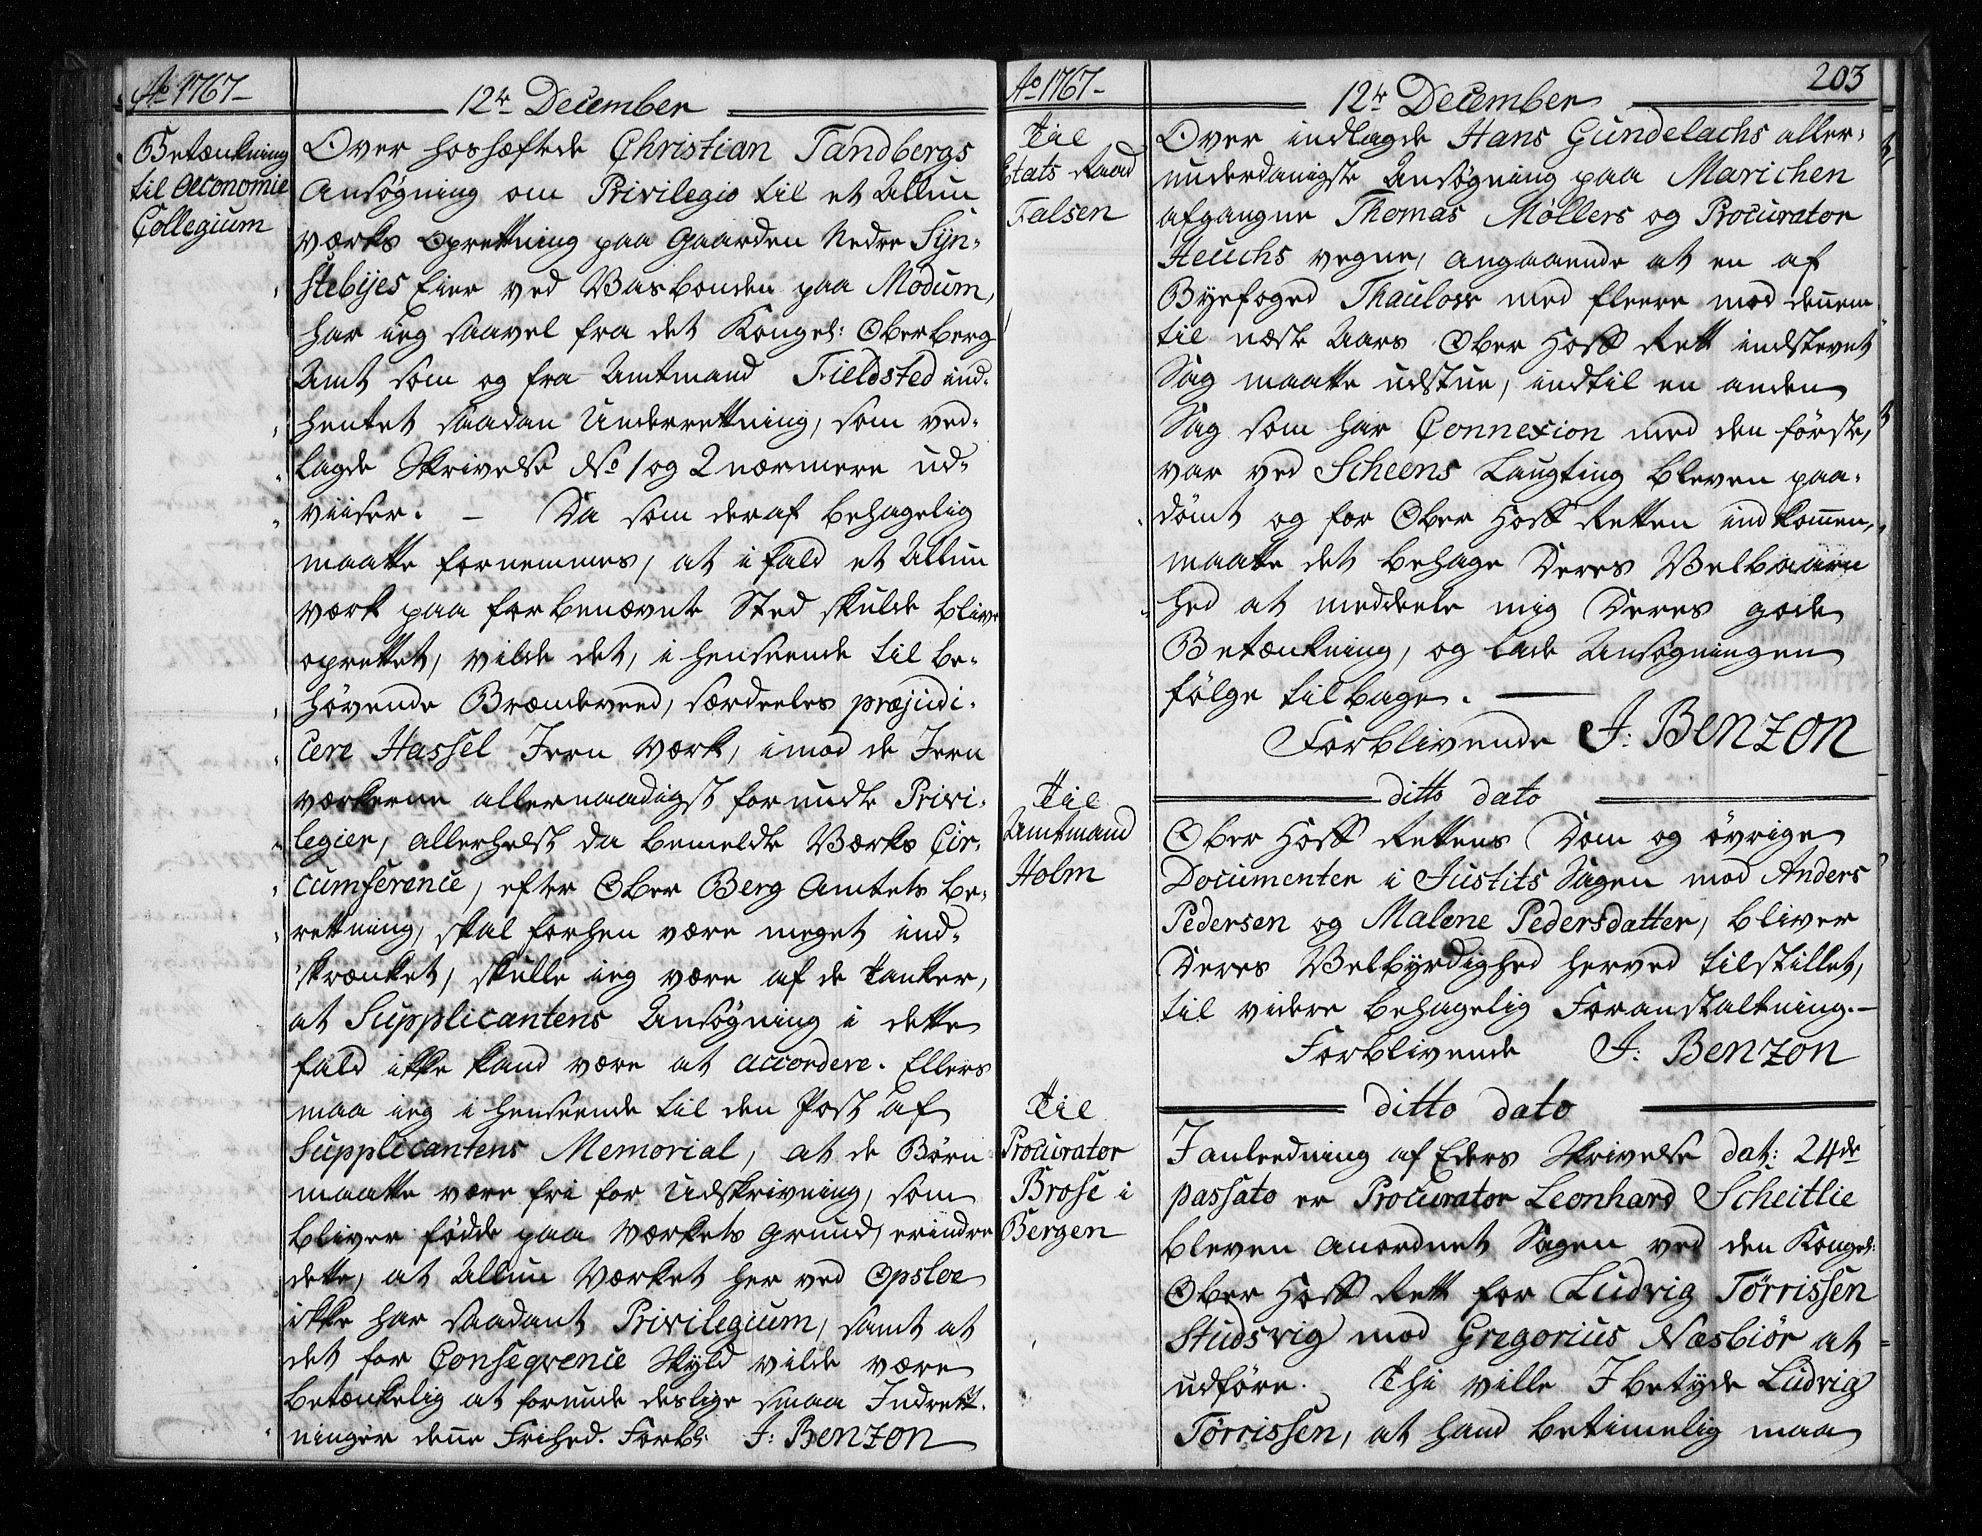 Ao 1767-
12te December
Betænkning
til Oeconomie
Collegium
Over hoshæftede Christian Tandbergs
Ansøgning om Privilegio til et Allun
værks Oprettning paa Gaarden Nedre Sÿn-
stebÿes Eier ved Vasbonden paa Modum,
har ieg saavel fra det Kongel: OberBerg
Amt som og fra Amtmand Fieldsted ind-
hentet saadan Underrettning, som ved-
lagde Skrivelse No 1 og 2 nærmere ud-
viiser. - Da som deraf behagelig
maatte fornemmes, at i fald et Allun
værk paa forbenævnte Sted skulde blive
oprettet, vilde det, i henseende til be-
høvende Brændeveed, særdeeles præjudi-
cere Hassel Jern Værk, imod de Jern
værkerne allernaadigst forundte Privi-
legier, allerhelst da bemeldte Værks Cir-
cumference, efter Ober Berg Amtets be-
rettning, skal forhen være meget ind-
skrænket, skulle ieg være af de Tanker,
at Supplicantens Ansøgning i dette
fald ikke kand være at accordere. Ellers
maa ieg i henseende til den Post af
Supplicantens Memorial, at de Børn
maatte være fri for Udskrivning, som
bliver fødde paa Værkets Grund, erindre
dette, at Allun Værket her ved Opsloe
ikke har saadant Privilegium, samt at
det for Conseqvence Skyld vilde være
betænkelig at forunde deslige smaa Indrett-
ninger denne Frihed. Forbl: J: Benzon
Ao 1767-
12te December
203
Til
Etats Raad
Falsen
Over indlagde Hans Gundelachs aller-
underdanigste Ansøgning paa Marichen
afgangne Thomas Møllers og Procurator
Heuchs vegne, angaaende at en af
Byefoged Thaulow med fleere mod dennem
til næste Aars Ober Hoff Rett indstevnt
Sag maatte udstue, indtil en anden
Sag som har Connexion med den første,
var ved Scheens Laugting bleven paa-
dømt og for Ober Hoff Retten indkommen,
maatte det behage Deres Velbaarn
hed at meddeele mig Deres gode
Betænkning, og lade Ansøgningen
følge tilbage. -
Forblivende J: Benzon
ditto dato
Til
Amtmand
Holm
Ober Hoff Rettens Dom og øvrige
Documenter i Justits Sagen mod Anders
Pedersen og Malene Pedersdatter, bliver
Deres Velbyrdighed herved tilstillet,
til videre behagelig Foranstaltning. -
Forblivende J: Benzon
ditto dato
Til
Procurator
Brose i
Bergen
I anleedning af Eders Skrivelse dat: 24de
passato er Procurator Leonhard Scheitlie
bleven anordnet Sagen ved den Kongel:
Ober Hoff Rett for Ludvig Tørrissen
Studsvig mod Gregorius Næsbiør at
udføre. Thi ville I betyde Ludvig
Tørrissen, at hand betimelig maa